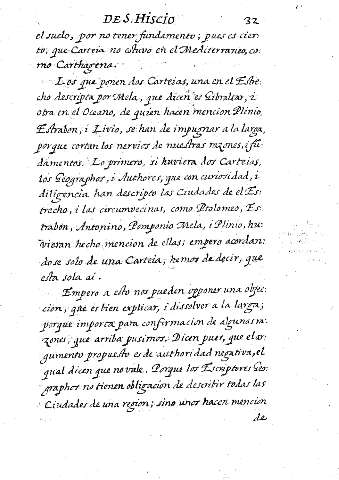 DE S. Hiscio 32
el suelo, por no tener fundamento; pues es cier-
to, que Carteia no estuvo en el Mediterraneo, co-
mo Carthagena.
Los que ponen dos Carteias, una en el Estre-
cho descripta por Mela, que dicen es Gibraltar, i
otra en el Oceano, de quien hacen mencion Plinio,
Estrabon, i Livio, se han de impugnar a la larga,
porque cortan los nervios de nuestras razones, i fũ-
damentos. Lo primero, si huviera dos Carteias,
los Geographos, i Authores, que con curiosidad, i
diligencia han descripto las Ciudades de el Es-
trecho, i las circumvecinas, como Ptolomeo, Es-
trabón, Antonino, Pomponio Mela, i Plinio, hu-
vieran hecho mencion de ellas; empero acordan-
dose solo de una Carteia; hemos de decir, que
esta sola ai.
Empero a esto nos pueden opponer una objec-
cion, que es bien explicar, i dissolver a la larga;
porque importa para confirmacion de algunas ra-
zones, que arriba pusimos. Dicen pues, que el ar-
gumento propuesto es de authoridad negativa, el
qual dicen que no vale. Porque los Escriptores Geo-
graphos no tienen obligacion de describir todas las
Ciudades de una region; sino unos hacen mencion
de